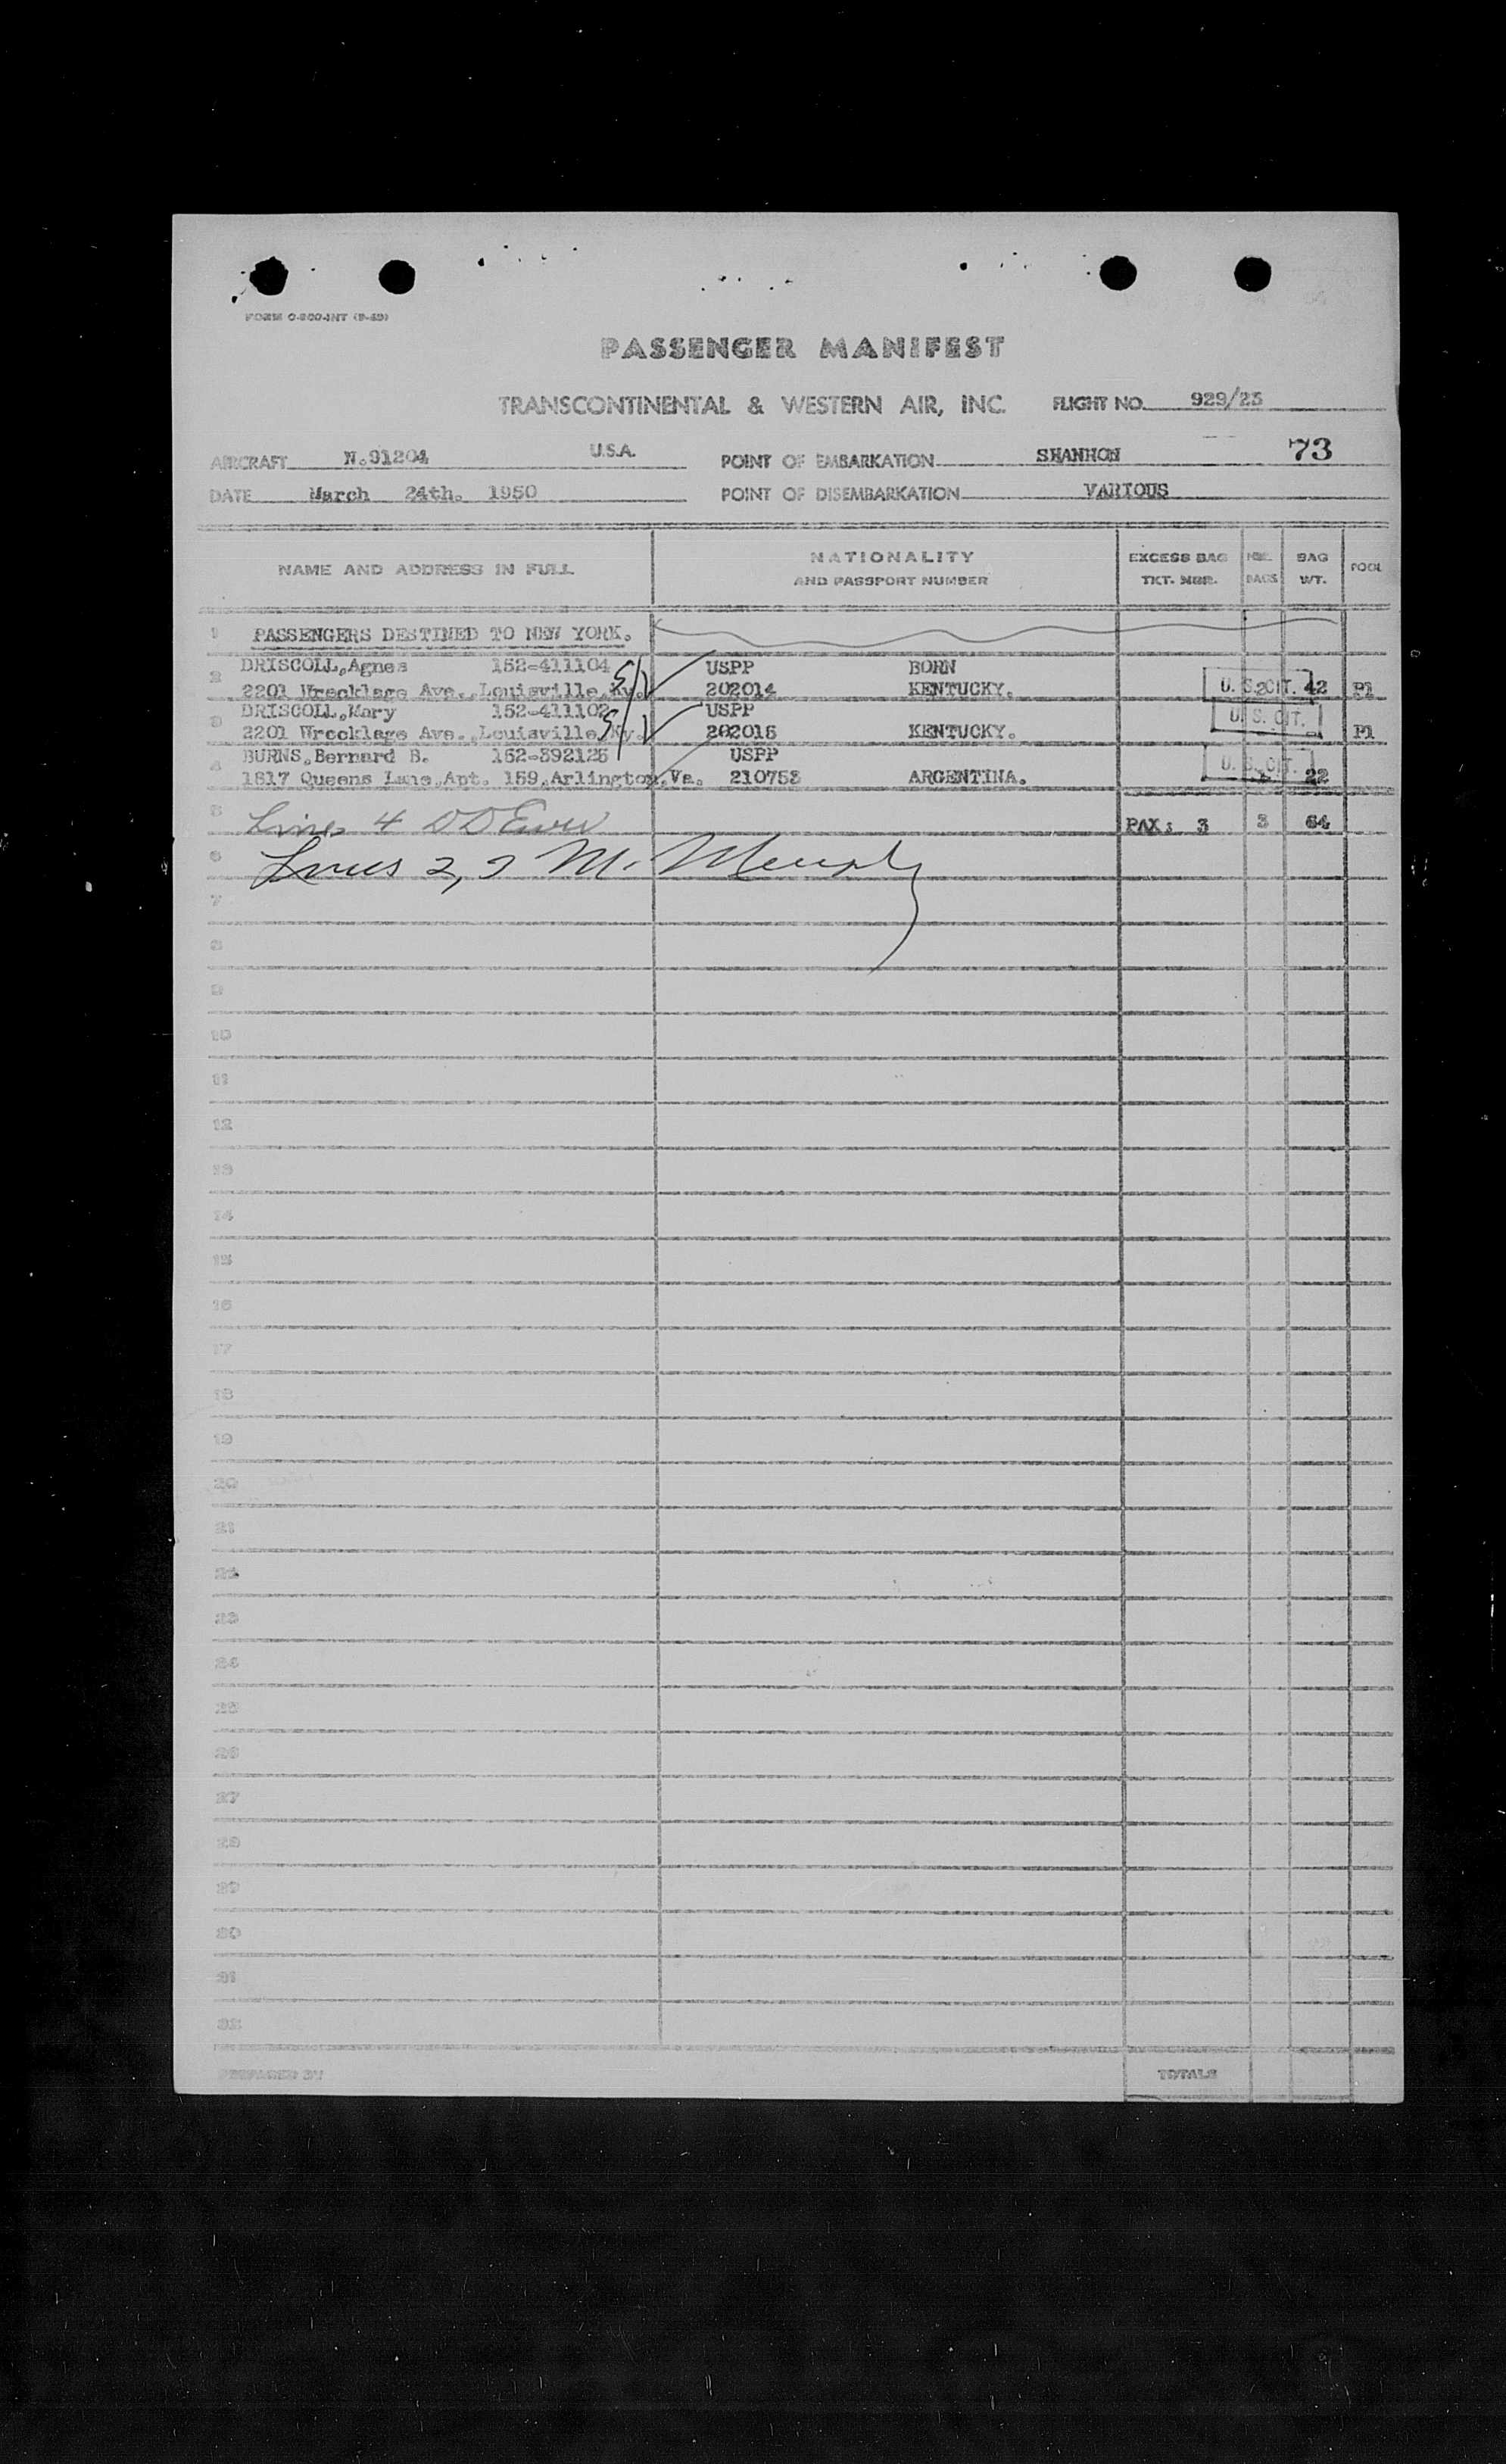 FORM O-800-INT (9-49)
PASSENGER MANIFEST
TRANSCONTINENTAL & WESTERN AIR, INC. FLIGHT NO. 929/23
AIRCRAFT N.91204 U.S.A. POINT OF EMBARKATION SHANNON 73
DATE March 24th. 1950 POINT OF DISEMBARKATION VARIOUS
NAME AND ADDRESS IN FULL NATIONALITY AND PASSPORT NUMBER EXCESS BAG TKT. NBR. NBR. BAGS BAG WT. POOL
1 PASSENGERS DESTINED TO NEW YORK.
DRISCOLL,Agnes 152-411104 USPP BORN
2 2201 Wrecklage Ave.,Louisville,Ky. 202014 KENTUCKY. U. S. CIT. 2 42 P1
DRISCOLL,Mary 152-411102 USPP U. S. CIT.
3 2201 Wrecklage Ave.,Louisville,Ky. 202015 KENTUCKY. P1
BURNS,Bernard B. 152-392125 USPP U. S. CIT.
4 1817 Queens Lane,Apt. 159,Arlington,Va. 210753 ARGENTINA. 22
5 Lines 4 PAX: 3 3 64
6 Lines 2, 3 M. Murphy
7
8
9
10
11
12
13
14
15
16
17
18
19
20
21
22
23
24
25
26
27
28
29
30
31
32
PREPARED BY TOTALS